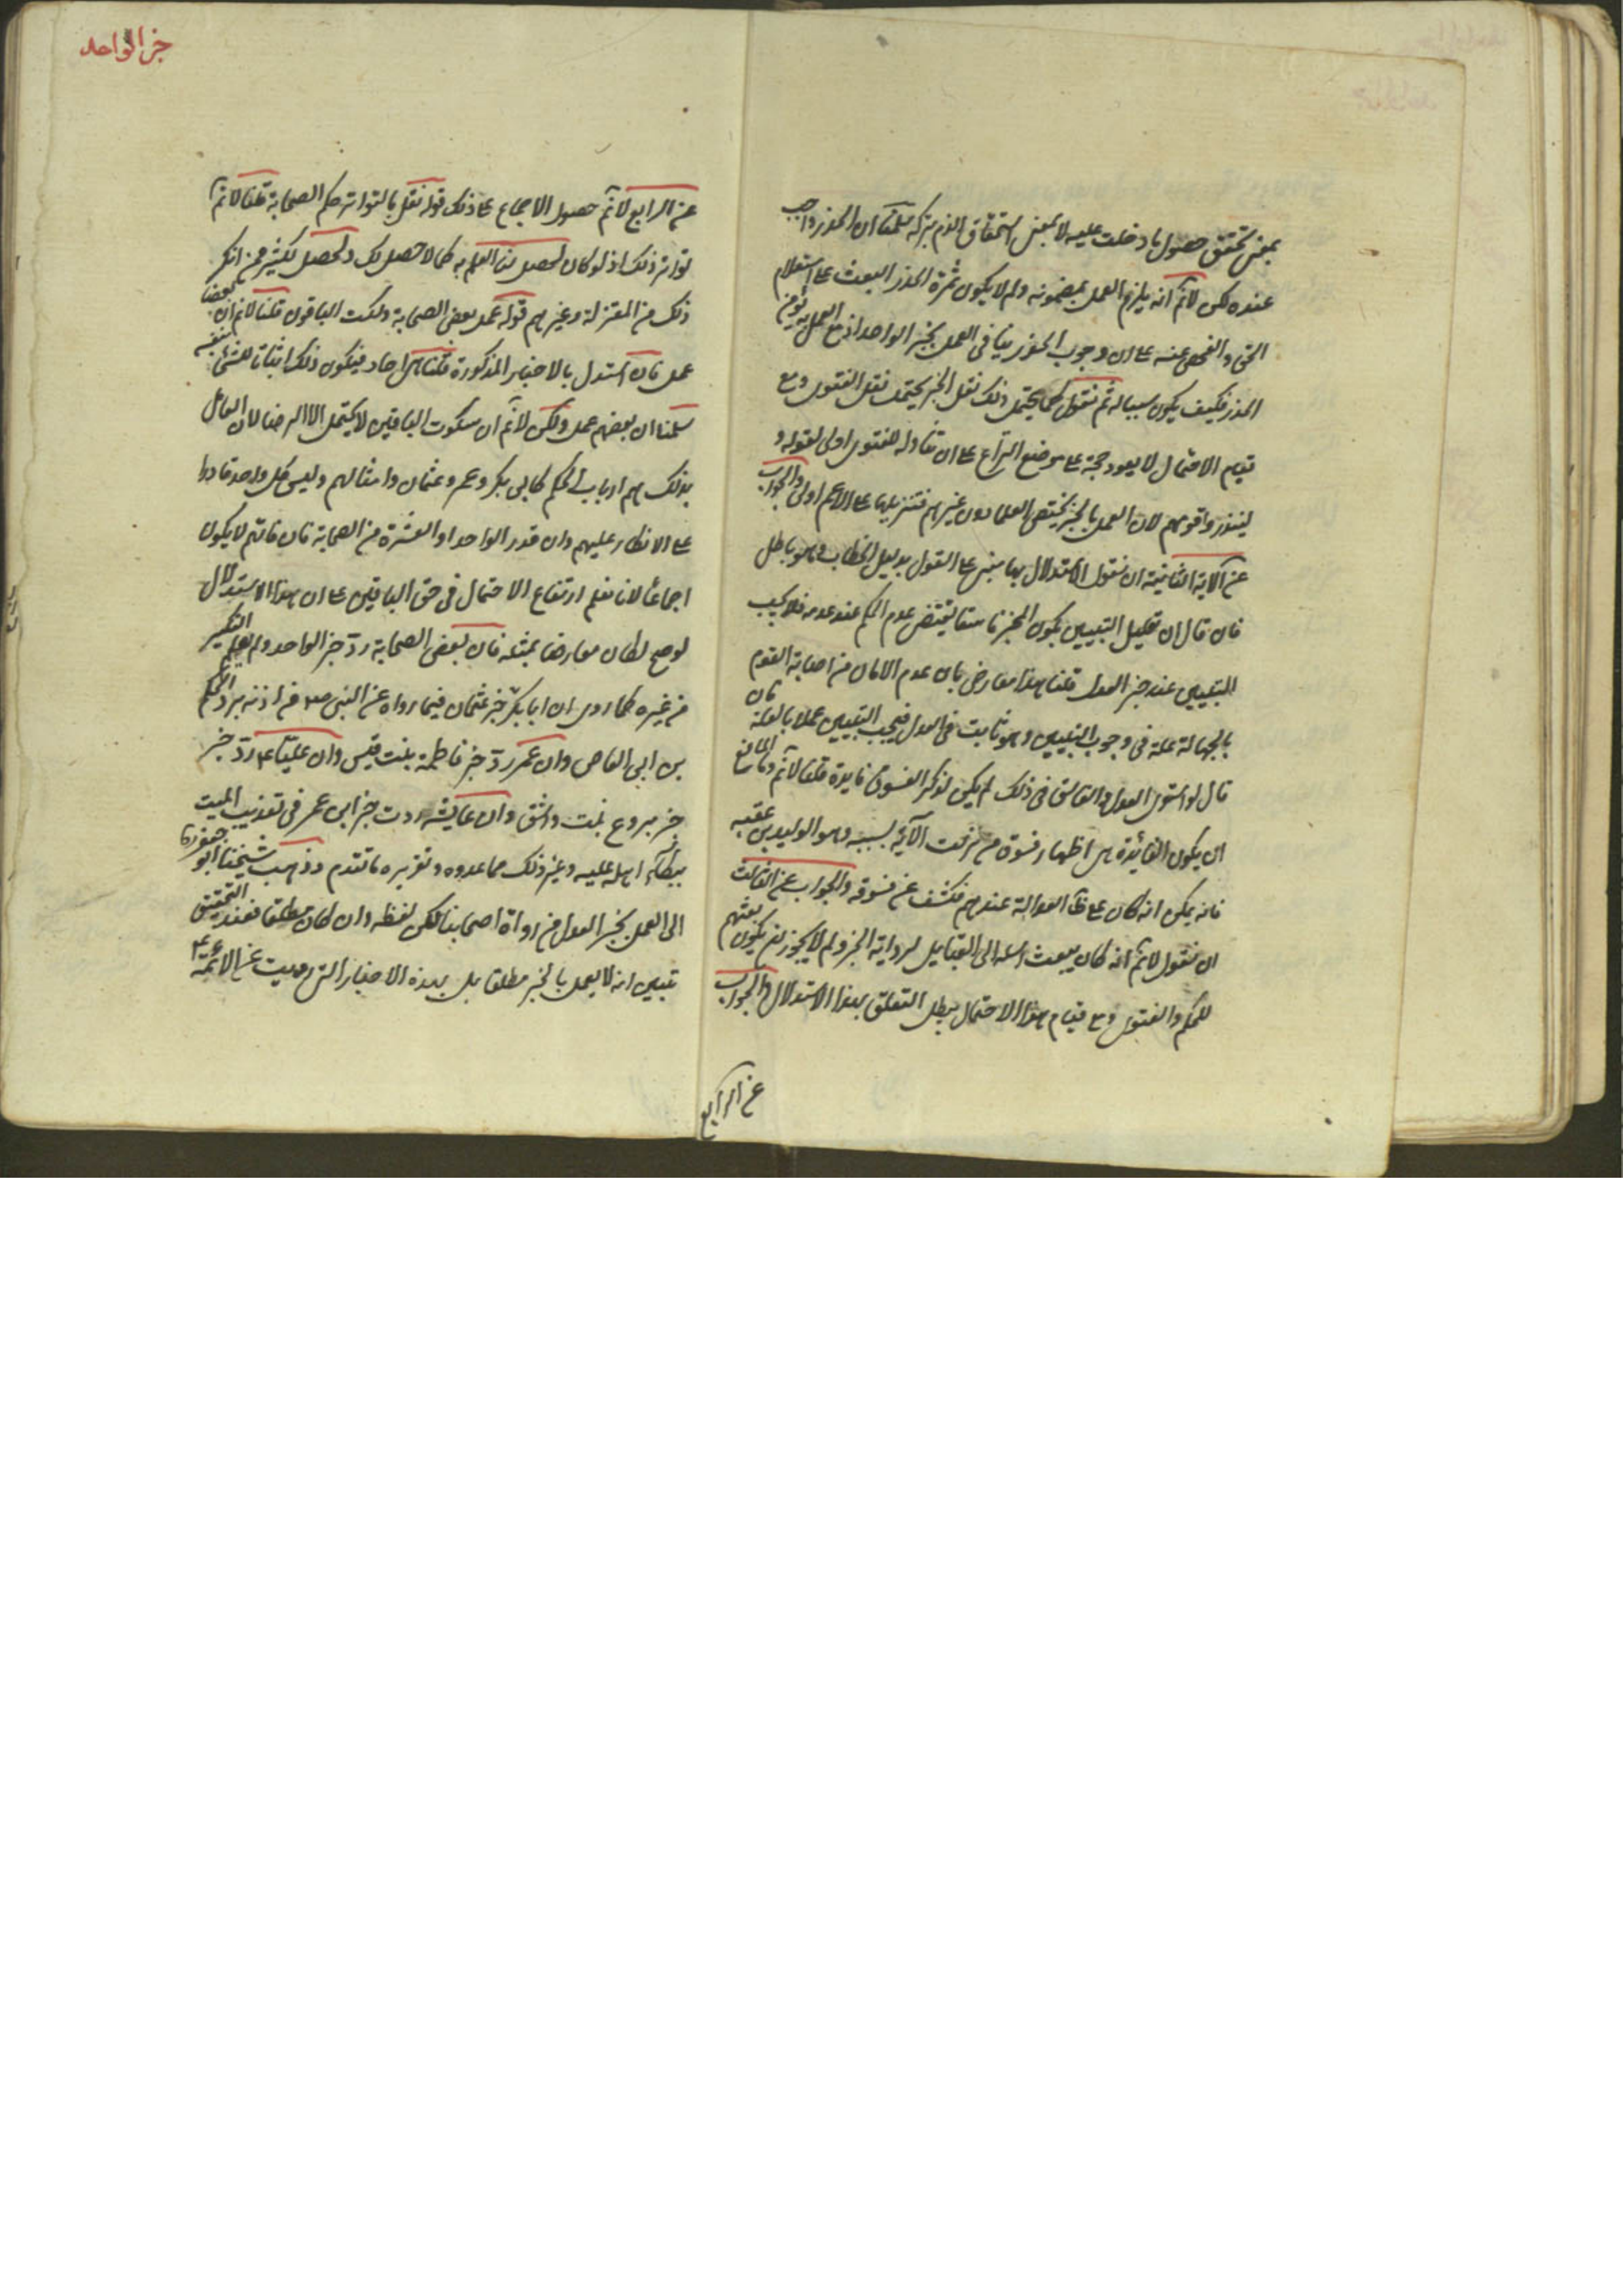 بمعنى تحقق حصول ما دخلت عليه لا بمعنى استحقاق الذم بتركه سلمنا ان الحذر واجب
عنده لكن لا نم انه يلزم العمل بمضمونه ولم لا يكون ثمرة الحذر البعث على استعلام
الحق والفحص عنه على ان وجوب الحذر ينافى العمل بخبر الواحد اذ مع العمل به يؤمن
الحذر فكيف يكون سبيا له ثم نقول كما يحتمل ذلك نقل الخبر يحتمل نقل الفتوى ومع
قيام الاحتمال لا يعود حجة على موضع النزاع على ان تناوله للفتوى اولى لقوله و
لينذروا قومهم لان العمل بالخبر يختص العلما دون غيرهم فتنزيلها على الاعم اولى والجواب
عن الآية الثانية ان نقول الاستدلال بها مبنى على القول بدليل الخطاب وهو باطل
فان قال ان تعليل التبيين بكون المخبر فاسقا يقتضى عدم الحكم عند عدمه فلا يجب
التبيين عند خبر العدل قلنا هذا معارض بان عدم الامان من اصابة القوم
بالجهالة علة فى وجوب التبيين وهو ثابت فى العدل فيجب التبيين عملا بالعلة فان
قال لو استوى العدل والفاسق فى ذلك لم يكن لذكر الفسوق فايدة قلنا لا نم وما المانع
ان يكون الفائدة هى اظهار فسوق من نزلت الآية بسببه وهو الوليد بن عقبه
فانه يمكن انه كان على ظ العدالة عندهم فكشف عن فسوقه والجواب عن الثالث
ان نقول لا نم انه كان يبعث رسله الى القبايل لرواية الخبر ولم لا يجوز ان يكون بعثهم
للحكم والفتوى ومع قيام هذا الاحتمال يبطل التعلق بهذا الاستدلال والجواب
عن الرابع
خبر الواحد
عن الرابع لا نم حصول الاجماع على ذلك قوله نقل بالتواتر حكم الصحابة قلنا لا نم
تواتر ذلك اذ لو كان لحصل لنا العلم به كما لا حصل لك ولحصل لكثير ممن انكر
ذلك من المعتزلة وغيرهم قوله عمل بعض الصحابة وسكت الباقون قلنا لا نم ان بعضا
عمل فان استدل بالاخبار المذكورة قلنا هى احاد فيكون ذلك اثباتا للشئ بنفسه
سلمنا ان بعضهم عمل ولكن لا نم ان سكوت الباقين لا يحتمل الا الرضا لان العامل
بذلك هم ارباب الحكم كابى بكر وعمر وعثمان وامثالهم وليس كل واحد قادرا
على الانكار عليهم وان قدر الواحد او العشرة من الصحابة فان ذلك لا يكون
اجماعا لانا نعلم ارتفاع الاحتمال فى حق الباقين على ان هذا الاستدلال
لو صح لكان معارضا بمثله فان بعض الصحابة رد خبر الواحد ولم يعلم النكير
من غيره كما روى ان ابا بكر رد خبر عثمان فيما رواه عن النبى ص من اذنه برد الحكم
بن ابى العاص وان عمر رد خبر فاطمة بنت قيس وان عليا ع رد خبر
خبر بروع بنت واشق وان عايشه ردت خبر ابن عمر فى تعذيب الميت
ببكاء اهله عليه وغير ذلك مما عدوه وتقريره ما تقدم وذهب شيخنا ابو جعفر ره
الى العمل بخبر العدل من رواة اصحابنا لكن لفظه وان كان مطلقا فعند التحقيق
تبين انه لا يعمل بالخبر مطلقا بل بهذه الاخبار التى رويت عن الائمة ع